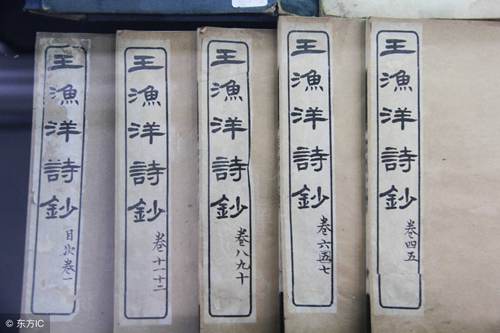 王漁洋詩鈔
目次卷一
王漁洋詩鈔
卷十一十二
王漁洋詩鈔
卷八九十
王漁洋詩鈔
卷六五七
王漁洋詩鈔
卷四五
© 东方IC
© 东方IC